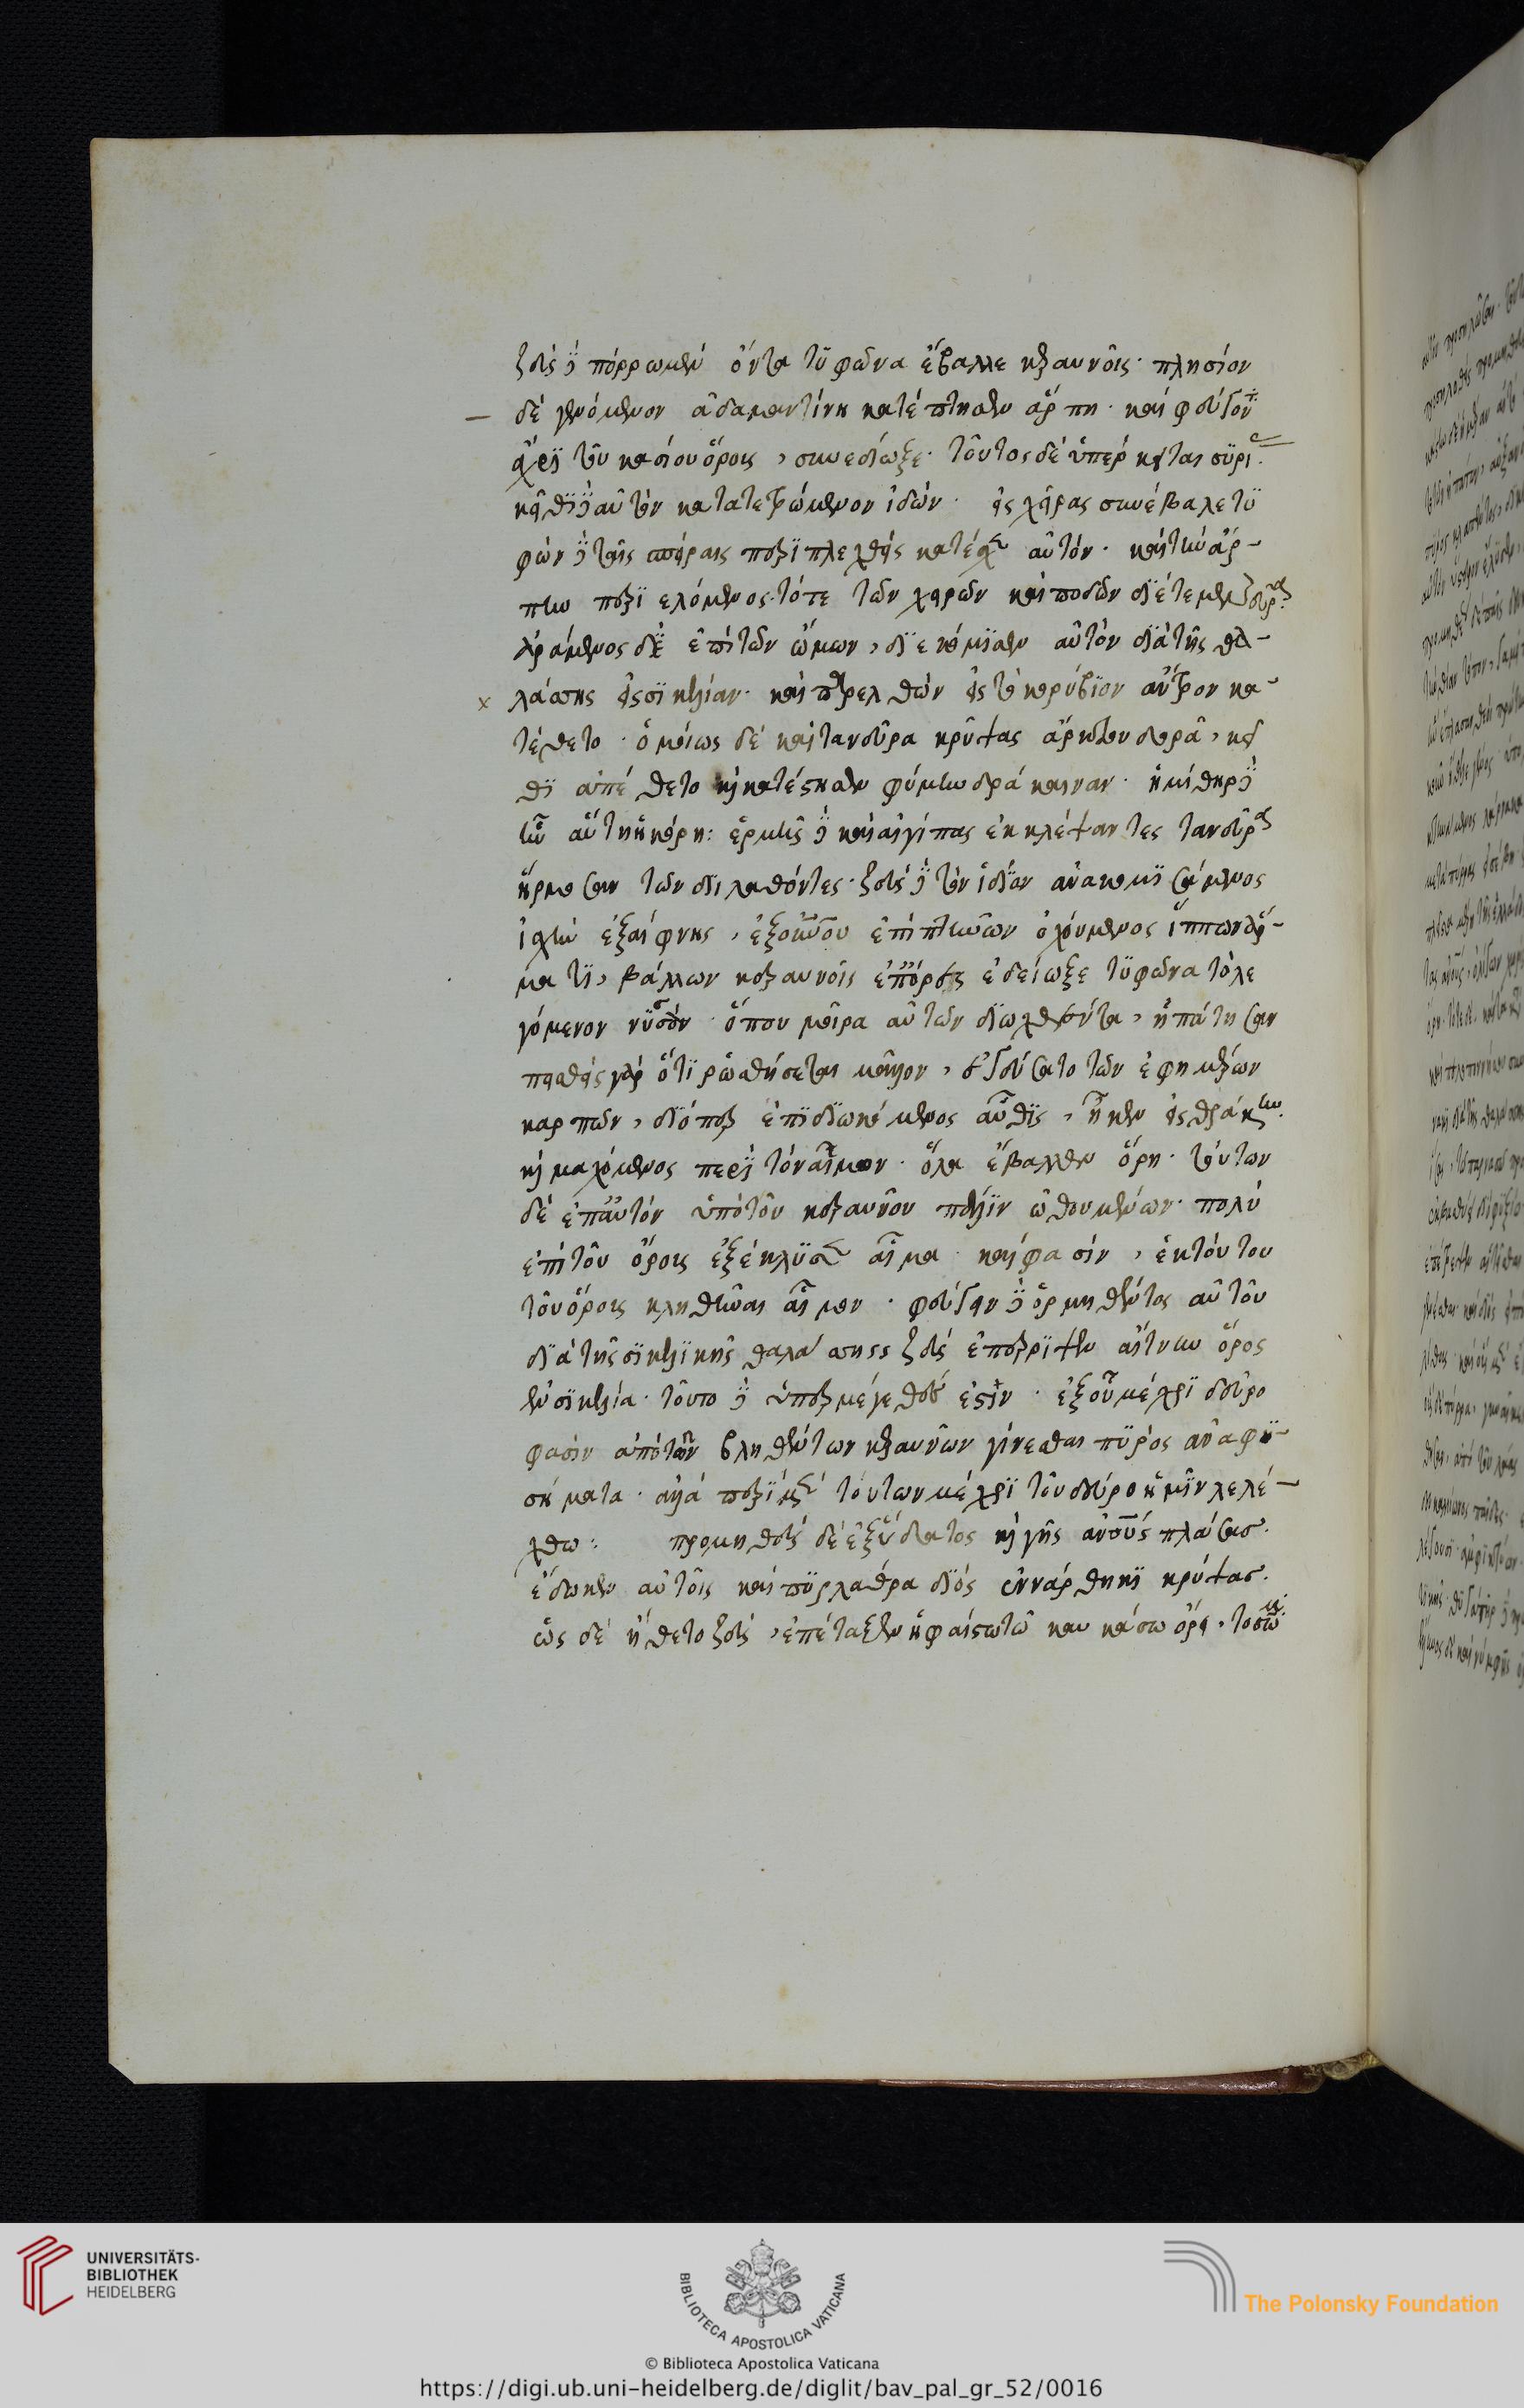 ζεὺς δὲ πόρρωμὲν ὄντα τυφῶνα ἔβαλλε κεραυνοῖς· πλησίον
δὲ γενόμενον ἀδαμαντίνη κατέπτησεν ἅρπη· καὶ φεύγοντα
ἄχρι τοῦ κασίου ὄρους, συνεδίωξε· τοῦτος δὲ ὑπέρκειται συρίας·
κεῖθι δὲ αὐτὸν κατατετρωμένον ἰδὼν· εἰς χεῖρας συνέβαλε τυ
φὼν δὲ ταῖς σπείραις περιπλεχθεὶς κατέσχεν αὐτόν· καὶ τὴν ἅρ-
πην περιελόμενος τότε τῶν χειρῶν καὶ ποδῶν διέτεμε νεῦρα·
ἀράμενος δὲ ἐπὶ τῶν ὤμων, διεκόμισεν αὐτὸν διὰ τῆς θα-
λάσσης εἰς σικελίαν· καὶ παρελθὼν εἰς τὸ κορύβιον ἄντρον κα-
τέθετο· ὁμοίως δὲ καὶ τανεῦρα κρύψας ἄρκτου δορᾶ, κεῖ
θι ἀπέθετο καὶ κατέστησεν φύμην δράκαιναν· ἡμίθηρ δὲ
ἦν αὕτη ἡ κόρη: ἑρμῆς δὲ καὶ αἰγίπας ἐκκλέψαντες τανεῦρα
ἥρμοσαν τῶν διὶ λαθόντες· ζεὺς δὲ τὴν ἰδίαν ἀνακομισάμενος
ἰσχὺν ἐξαίφνης, ἐξ οὐνοῦ ἐπὶ πτηνῶν ὀχούμενος ἵππων ἅρ-
ματι, βάλλων κεραυνοῖς ἐπ' ὄρος ἐδείωξε τυφῶνα τὸ λε
γόμενον νύσσαν· ὅπου μοῖρα αὐτῶν διωχθέντα, ἠπάτησαν
πεισθεὶς γὰρ ὅτι ῥωσθήσεται μᾶλλον, ἐγεύσατο τῶν ἐφημέρων
καρπῶν, διόπερ ἐπιδιωκόμενος αὖθις, ἧκεν εἰς θράκην·
καὶ μαχόμενος περὶ τὸν αἷμον· ὅλα ἔβαλλεν ὄρη· τούτων
δὲ ἐπ' αὐτὸν ὑπὸ τοῦ κεραυνοῦ πάλιν ὠθουμένων· πολὺ
ἐπὶ τοῦ ὄρους ἐξέκλυσεν αἷμα· καὶ φασὶν, ἐκ τούτου
τοῦ ὄρους κληθῆναι αἷμον· φεύγειν δὲ ὁρμηθέντος αὐτοῦ
διὰ τῆς σικελικῆς θαλάσσης ζεὺς ἐπέρριψεν αἴτνην ὄρος
ἐν σικελία· τοῦτο δὲ ὑπερμέγεθές ἐστιν· ἐξ οὗ μέχρι δεῦρο
φασὶν ἀπὸ τῶν βληθέντων κεραυνῶν γίνεσθαι πυρὸς ἀναφυ-
σήματα· ἀλλὰ περὶ μὲν τούτων μέχρι τοῦ δεύρο ἡμῖν λελέ-
χθω: προμηθεὺς δὲ ἐξ ὕδατος καὶ γῆς ἀνους πλάσας·
ἔδωκεν αὐτοῖς καὶ πῦρ λάθρα διός ἐν νάρθηκι κρύψας·
ὡς δὲ ἤσθετο ζεὺς, ἐπέταξεν ἡφαίστω τῶ καυκάσω ὄρει, τὸ σῶμα
UNIVERSITÄTS-
BIBLIOTHEK
HEIDELBERG
BIBLIOTECA APOSTOLICA VATICANA
The Polonsky Foundation
© Biblioteca Apostolica Vaticana
https://digi.ub.uni-heidelberg.de/diglit/bav_pal_gr_52/0016